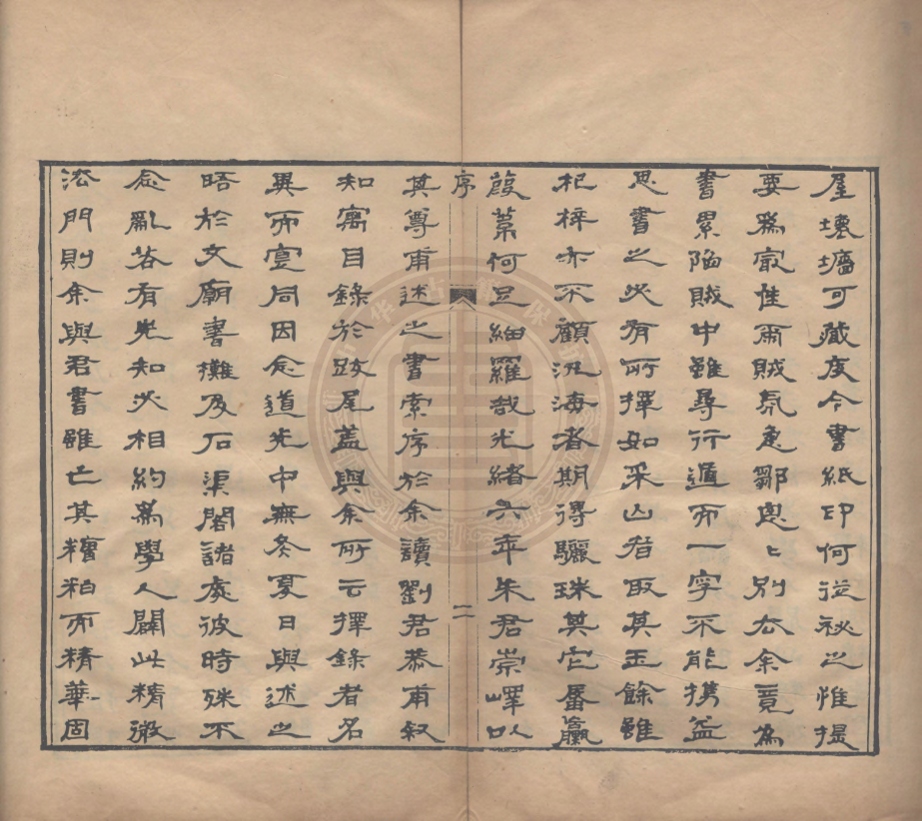 屋壞墻可藏庋今書紙印何從祕之惟提
要爲冣惟甯賊氛急鄒悤〻別去余竟為
書累陷賊中雖尋行遁而一字不能携益
思書之必有所擇如采山者取其玉餘雖
杞梓亦不顧汎海者期得驪珠其它蜃蠃
葭葦何足細羅哉光緒六年朱君崇嶧以
序 二
其尊甫述之書索序於余讀劉君恭甫叙
知寓目錄於跋尾蓋與余所云擇錄者名
異而實同因念道光中無冬夏日與述之
晤於文廟書攤及石渠閣諸處彼時殊不
念亂若有先知必相約爲學人闢此精微
法門則余與君書雖亡其糟粕而精華固